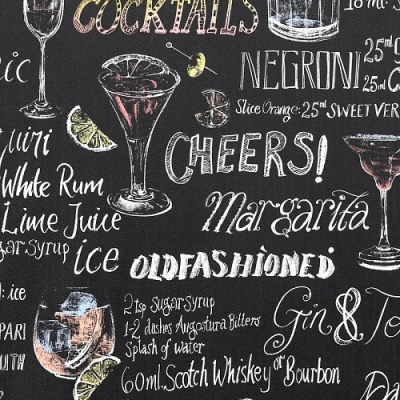 COCKTAILS
NEGRONI
Slice Orange: 25ml SWEET VER
CHEERS!
White Rum
Lime Juice
ice
Margarita
OLDFASHIONED
: ice
PARI
2 tsp Sugar Syrup
1-2 dashes Angostura Bitters
Splash of water
60ml. Scotch Whiskey or Bourbon
Gin & To